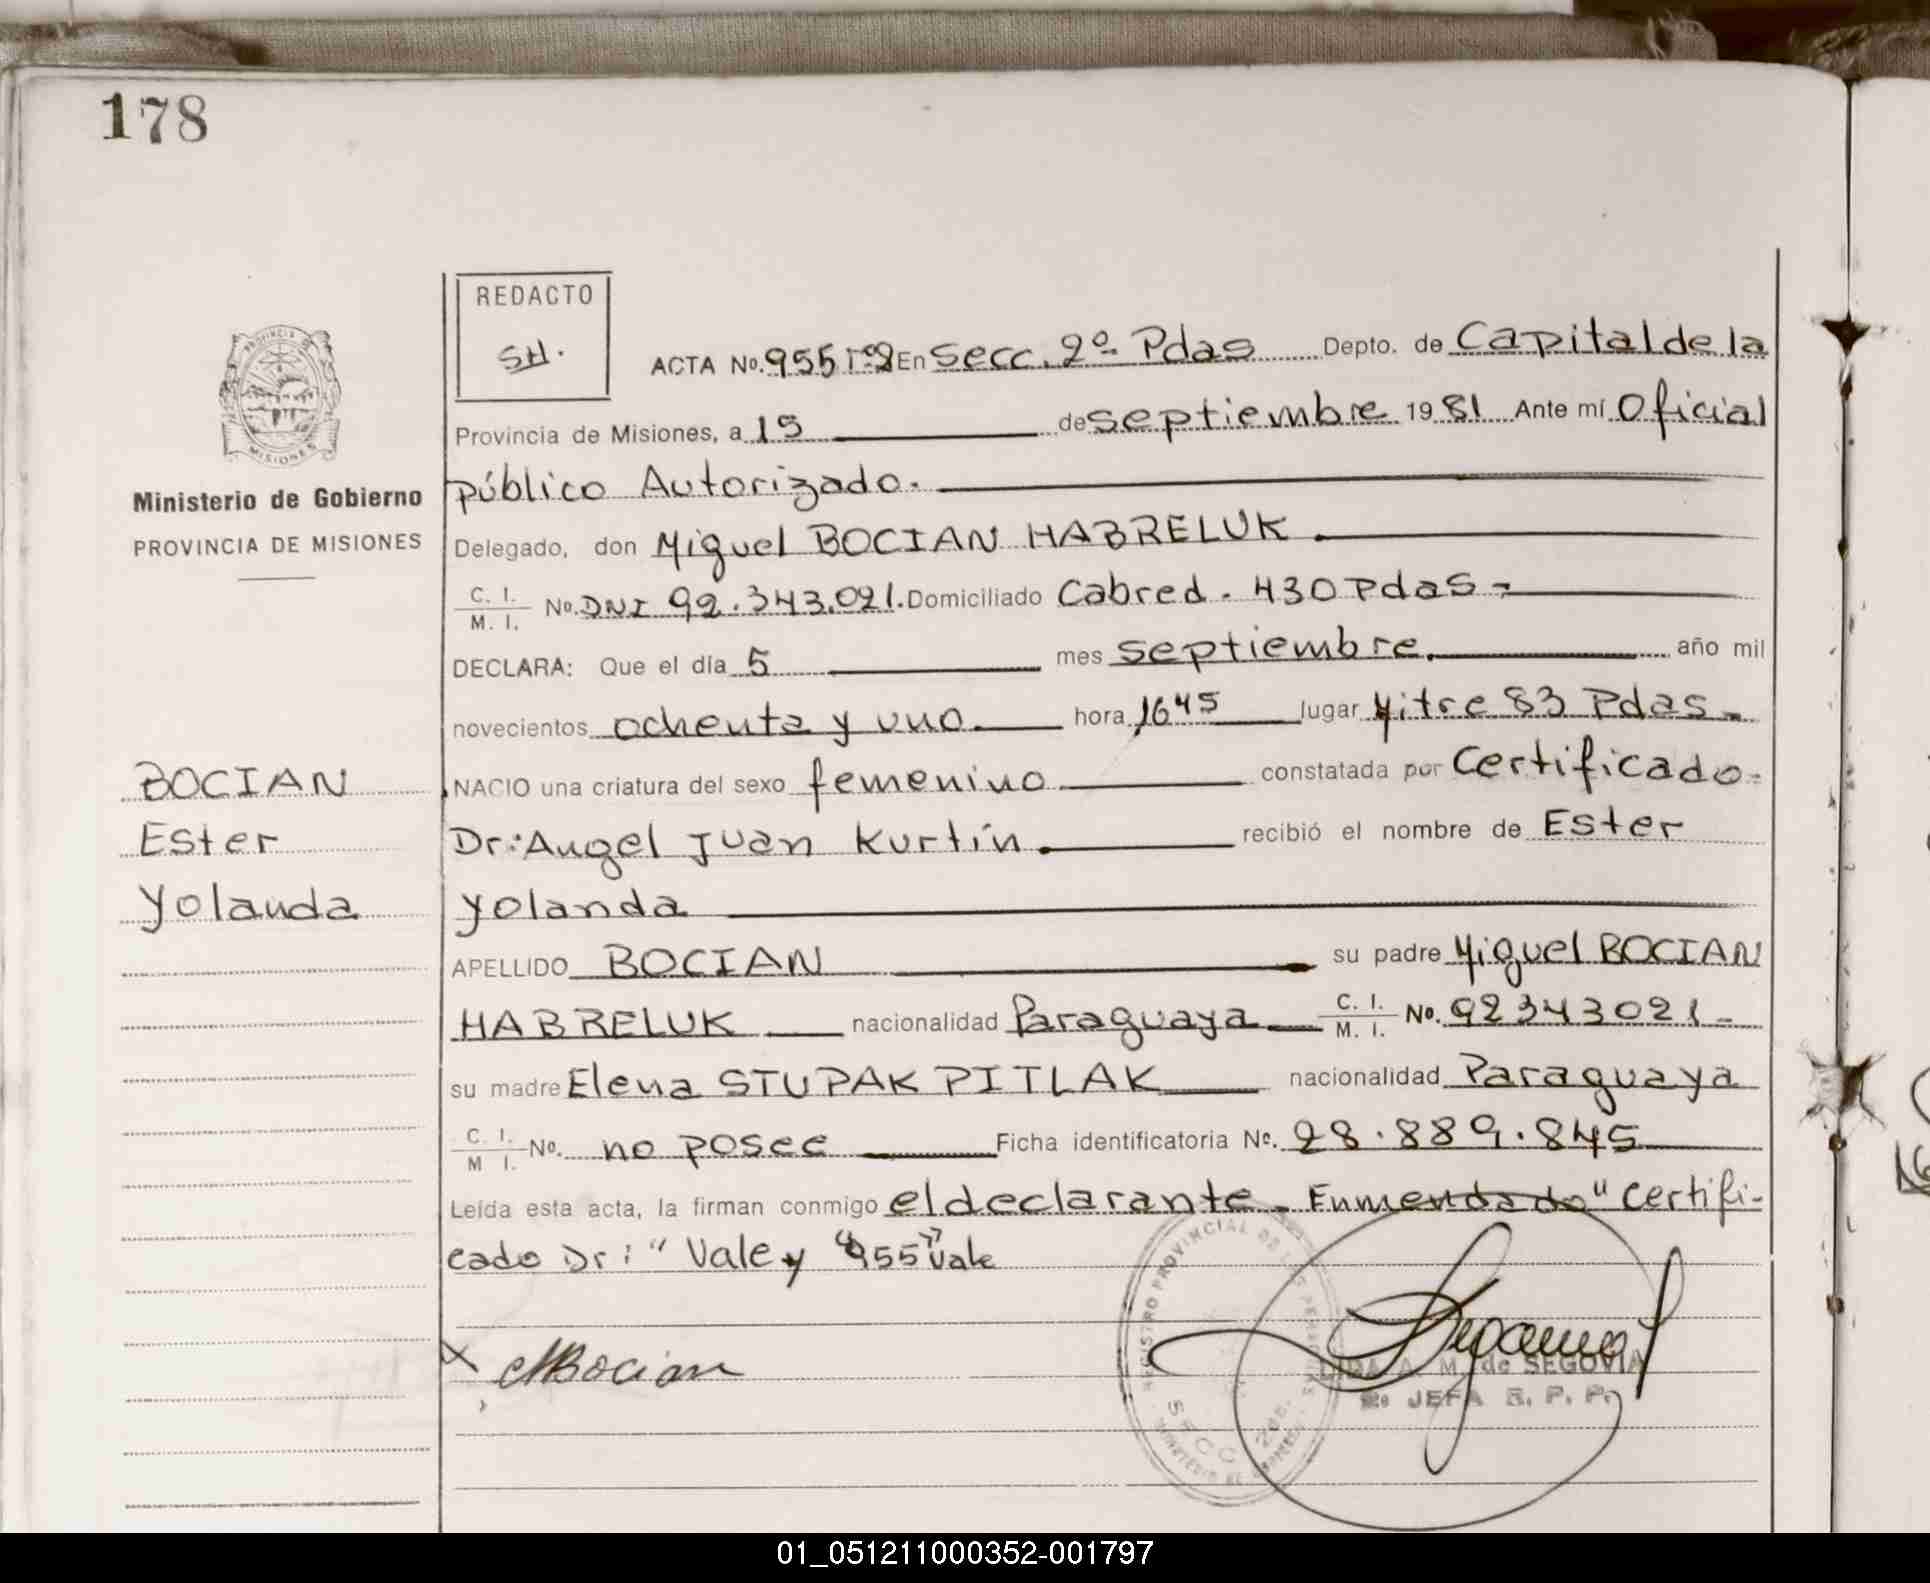 178
REDACTO
SH.
PROVINCIA DE
MISIONES
Ministerio de Gobierno
PROVINCIA DE MISIONES
ACTA No. 955 Tº2 En Secc. 2º Pdas Depto. de Capital de la
Provincia de Misiones, a 15 de septiembre 1981 Ante mí Oficial
público Autorizado.
Delegado, don Miguel BOCIAN HABRELUK.
C. I. / M. I. No. DNI 92.343.021. Domiciliado Cabred. 430 Pdas-
DECLARA: Que el día 5 mes septiembre. año mil
novecientos ochenta y uno. hora 16 45 lugar Mitre 83 Pdas-
NACIO una criatura del sexo femenino constatada por Certificado-
Dr: Angel Juan Kurtín. recibió el nombre de Ester
Yolanda
APELLIDO BOCIAN su padre Miguel BOCIAN
HABRELUK nacionalidad Paraguaya C. I. / M. I. No. 92343021-
su madre Elena STUPAK PITLAK nacionalidad Paraguaya
C. I. / M I. No. no posee Ficha identificatoria No. 28.889.845
Leída esta acta, la firman conmigo el declarante. Enmendado "certifi-
cado Dr: " Vale y "955" Vale
BOCIAN
Ester
Yolanda
MBocian
REGISTRO PROVINCIAL DE LAS PERSONAS
SECC. 2da.
MINISTERIO DE GOBIERNO
LIDA A. M. de SEGOVIA
2º JEFA R. P. P.
01_051211000352-001797